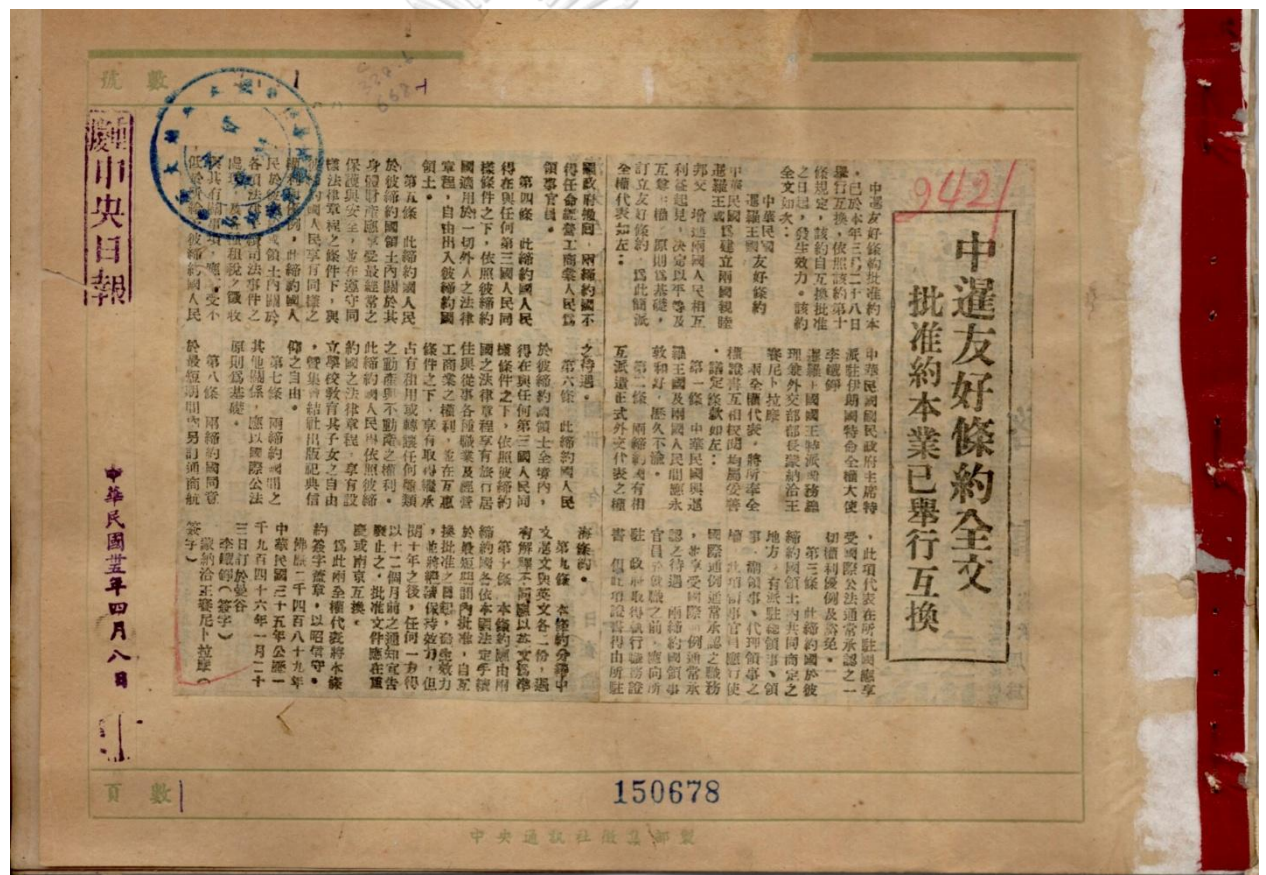 中暹友好條約全文
批准約本業已舉行互換
中暹友好條約批准約本
，已於本年三月二十八日
舉行互換，依照該約第十
條規定，該約自互換批准
之日起，發生效力。該約
全文如次：
中華民國
暹羅王國友好條約
中華民國
暹羅王國爲建立兩國親睦
邦交，增進兩國人民相互
利益起見，決定以平等及
互尊主權原則爲基礎，
訂立友好條約，爲此簡派
全權代表如左：
中華民國國民政府主席特
派駐伊朗國特命全權大使
李鐵錚
暹羅王國國王特派國務總
理兼外交部部長蒙納洽王
賽尼卜拉摩
兩全權代表，將所奉全
權證書互相校閱均屬妥善
，議定條款如左：
第一條　中華民國與暹
羅王國及兩國人民間應永
敦和好，歷久不渝。
第二條　兩締約國有相
互派遣正式外交代表之權
，此項代表在所駐國應享
受國際公法通常承認之一
切權利優例及豁免。
第三條　此締約國於彼
締約國領土內共同商定之
地方，有派駐總領事、領
事、副領事、代理領事之
權，此項領事官員應行使
國際通例通常承認之職務
，並享受國際通例通常承
認之待遇。兩締約國領事
官員於就職之前，應向所
駐政府取得執行職務證
書，但此項證書得由所駐
國政府撤回，兩締約國不
得任命經營工商業人民爲
領事官員。
第四條　此締約國人民
得在與任何第三國人民同
樣條件之下，依照彼締約
國適用於一切外人之法律
章程，自由出入彼締約國
領土。
第五條　此締約國人民
於彼締約國領土內關於其
身體財產應享受最經常之
保護與安全，並在遵守同
樣法律章程之條件下，與
彼締約國人民享有同樣之
權利，此締約國人
民於彼領土內關於
各項法司法事件之
處理及租稅之徵收
與其有關事項，應享受不
低於給彼締約國人民
之待遇。
第六條　此締約國人民
於彼締約國領土全境內，
得在與任何第三國人民同
樣條件之下，依照彼締約
國之法律章程享有旅行居
住與從事各種職業及經營
工商業之權利，並在互惠
條件之下，享有取得繼承
占有租用或轉讓任何種類
之動產與不動產之權利。
此締約國人民得依照彼締
約國之法律章程，享有設
立學校教育其子女之自由
，暨集會結社出版祀典信
仰之自由。
第七條　兩締約國間之
其他關係，應以國際公法
原則爲基礎。
第八條　兩締約國同意
於最短期間內另訂通商航
海條約。
第九條　本條約分繕中
文暹文與英文各二份，遇
有解釋不同應以英文爲準
第十條　本條約應由兩
締約國各依本國法定手續
於最短期間內批准，自互
換批准之日起，發生效力
，並將繼續保持效力，但
期十年之後，任何一方得
以十二個月前之通知宣告
廢止之，批准文件應在重
慶或南京互換。
爲此兩全權代表將本條
約簽字蓋章，以昭信守。
佛歷二千四百八十九年
中華民國三十五年公歷一
千九百四十六年一月二十
三日訂於曼谷
李鐵錚（簽字）
蒙納洽王賽尼卜拉摩（
簽字）
9421
號數
重慶
中央日報
中華民國卅五年四月八日
頁數
150678
中央通訊社徵集部製